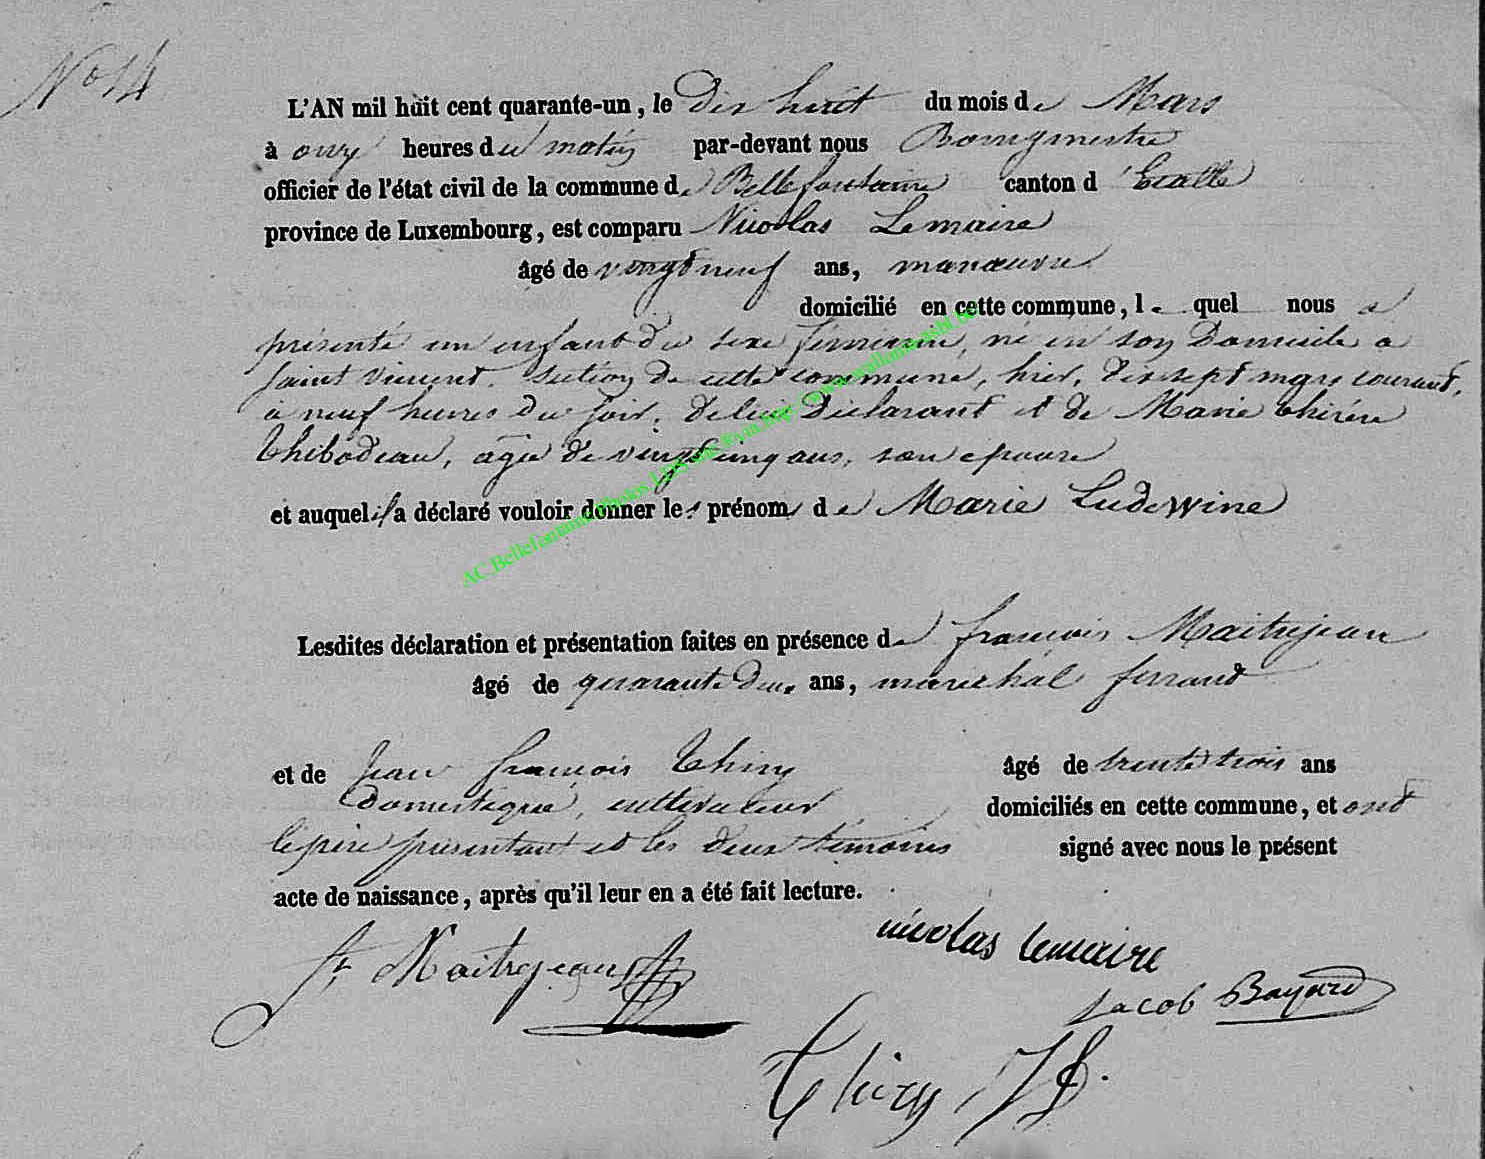 No 14
L'AN mil huit cent quarante-un, le dix huit du mois de Mars
à onze heures du matin par-devant nous Bourgmestre
officier de l'état civil de la commune de Bellefontaine canton d'Etalle
province de Luxembourg, est comparu Nicolas Lemaire
âgé de vingt neuf ans, manœuvre
domicilié en cette commune, lequel nous a
présenté un enfant du sexe féminin, né en son Domicile a
Saint Vincent, section de cette commune, hier, dix sept mars courant,
à neuf heures du soir, de lui Déclarant et de Marie thérèse
Thibodeau, agée de vingt cinq ans, son epouse
et auquel il a déclaré vouloir donner les prénoms de Marie Ludowine
Lesdites déclaration et présentation faites en présence de françois Maitrejean
âgé de quarante deux ans, maréchal ferrant
et de Jean françois Thiry âgé de trente trois ans
Domestique, cultivateur domiciliés en cette commune, et ont
le père présentant et les deux témoins signé avec nous le présent
acte de naissance, après qu'il leur en a été fait lecture.
fr Maitrejean
nicolas lemaire
Jacob Bayard
Thiry J f.